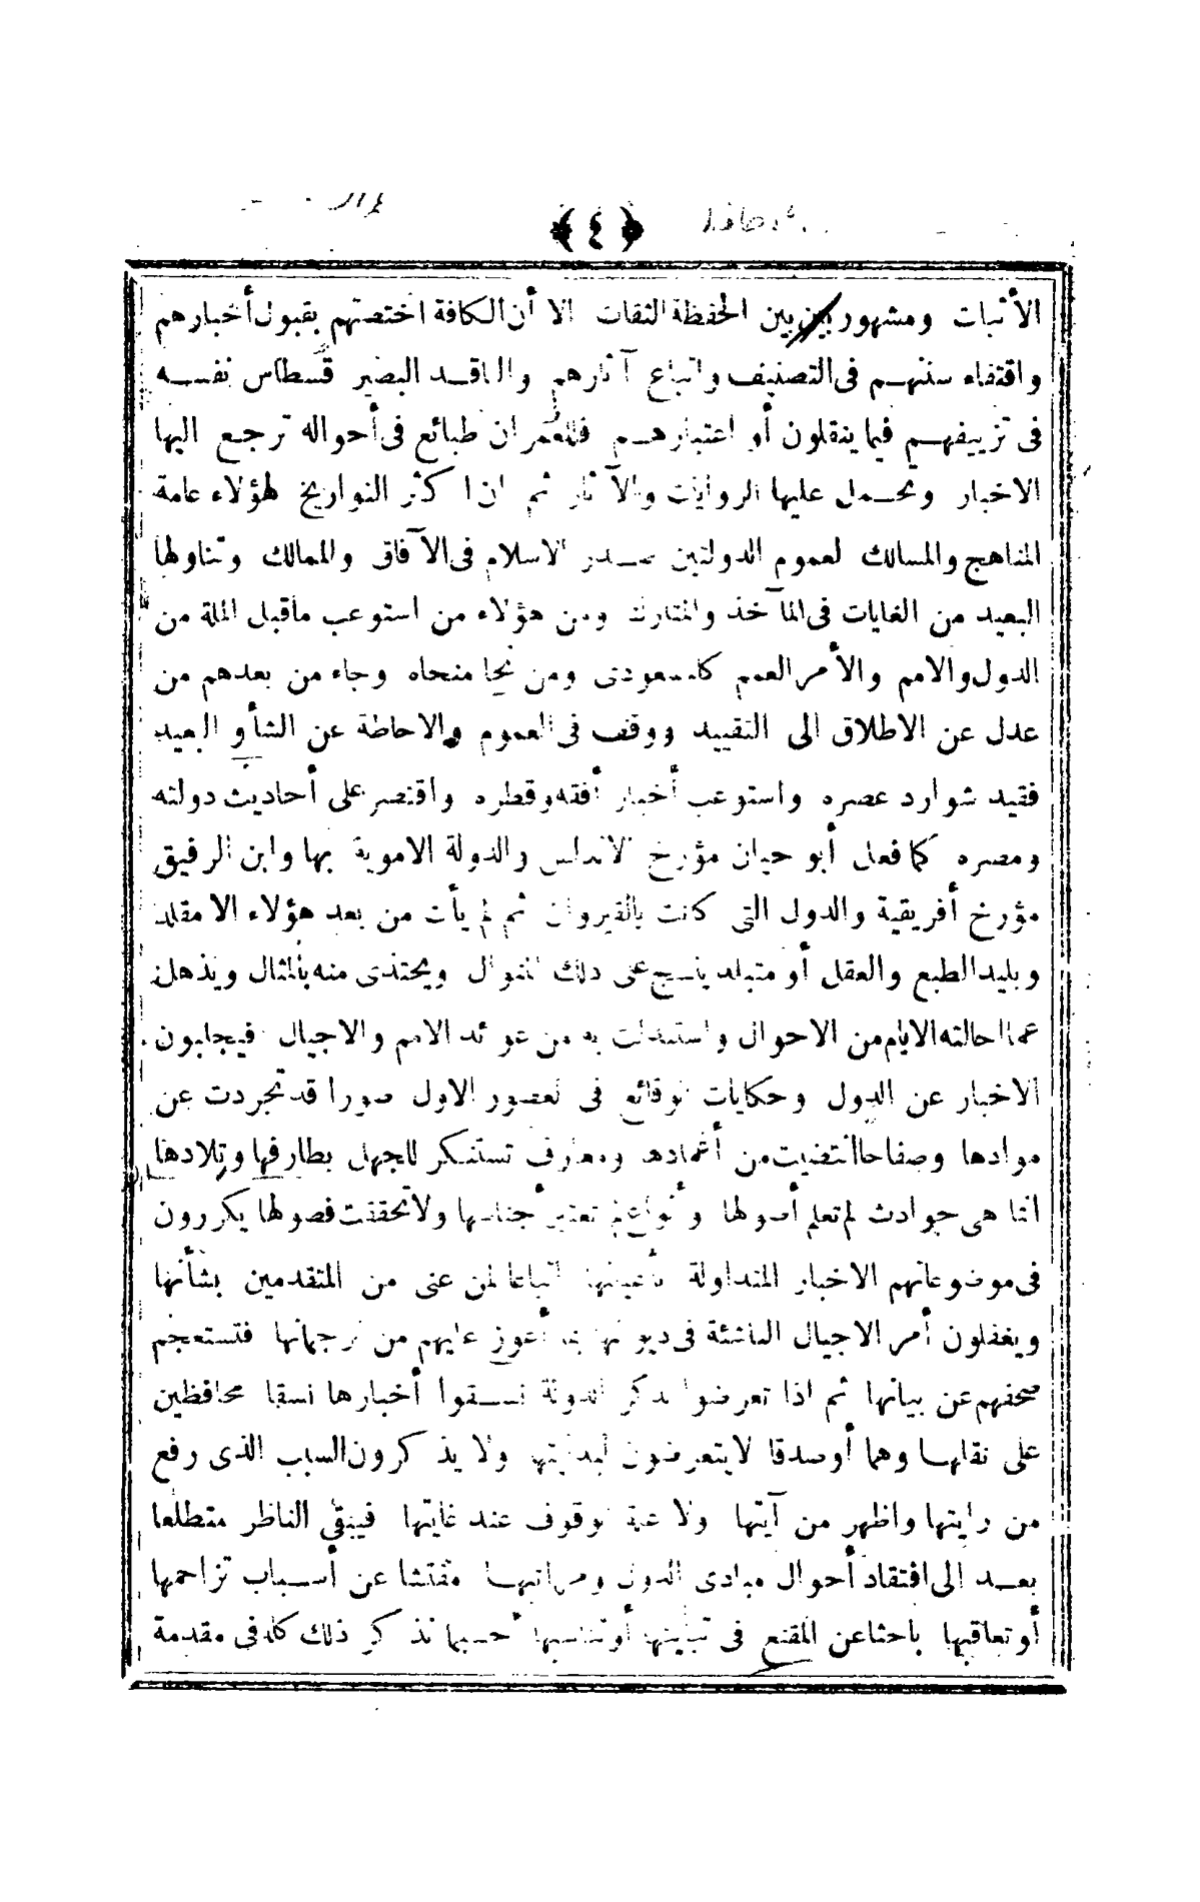 ﴿ ٤ ﴾
الأثبات ومشهور بين بين الحفظة الثقات الا أن الكافة اختصتهم بقبول أخبارهم
واقتفاء سننهم فى التصنيف واتباع آثارهم والناقد البصير قسطاس نفسه
فى تزييفهم فيما ينقلون أو اعتبارهم فللعمران طبائع فى أحواله ترجع اليها
الاخبار وتحمل عليها الروايات والآثار ثم ان أكثر التواريخ لهؤلاء عامة
المناهج والمسالك لعموم الدولتين صدر الاسلام فى الآفاق والممالك وتناولها
البعيد من الغايات فى المآخذ والمتارك ومن هؤلاء من استوعب ماقبل الملة من
الدول والامم والأمر العمم كالمسعودى ومن نحا منحاه وجاء من بعدهم من
عدل عن الاطلاق الى التقييد ووقف فى العموم والاحاطة عن الشأو البعيد
فقيد شوارد عصره واستوعب أخبار أفقه وقطره واقتصر على أحاديث دولته
ومصره كما فعل أبو حيان مؤرخ الاندلس والدولة الاموية بها وابن الرفيق
مؤرخ أفريقية والدول التى كانت بالقيروان ثم لم يأت من بعد هؤلاء الا مقلد
وبليد الطبع والعقل أو متبلد ينسج على ذلك المنوال ويحتذى منه بالمثال ويذهل
عما احالته الايام من الاحوال واستبدلت به من عوائد الامم والاجيال فيجلبون
الاخبار عن الدول وحكايات الوقائع فى العصور الاول صورا قد تجردت عن
موادها وصفاحا انتضيت من أغمادها ومعارف تستنكر للجهل بطارفها وتلادها
انما هى حوادث لم تعلم أصولها وأنواع لم تعتبر أجناسها ولا تحققت فصولها يكررون
فى موضوعاتهم الاخبار المتداولة بأعيانها اتباعا لمن عنى من المتقدمين بشأنها
ويغفلون أمر الاجيال الناشئة فى ديوانها بما أعوز عليهم من ترجمانها فتستعجم
صحفهم عن بيانها ثم اذا تعرضوا لذكر الدولة نسقوا أخبارها نسقا محافظين
على نقلها وهما أو صدقا لا يتعرضون لبدايتها ولا يذكرون السبب الذى رفع
من رايتها واظهر من آيتها ولا علة الوقوف عند غايتها فيبقى الناظر متطلعا
بعد الى افتقاد أحوال مبادى الدول ومراتبها مفتشا عن أسباب تزاحمها
أو تعاقبها باحثا عن المقنع فى تباينها أو تناسبها حسبما نذكر ذلك كله فى مقدمة